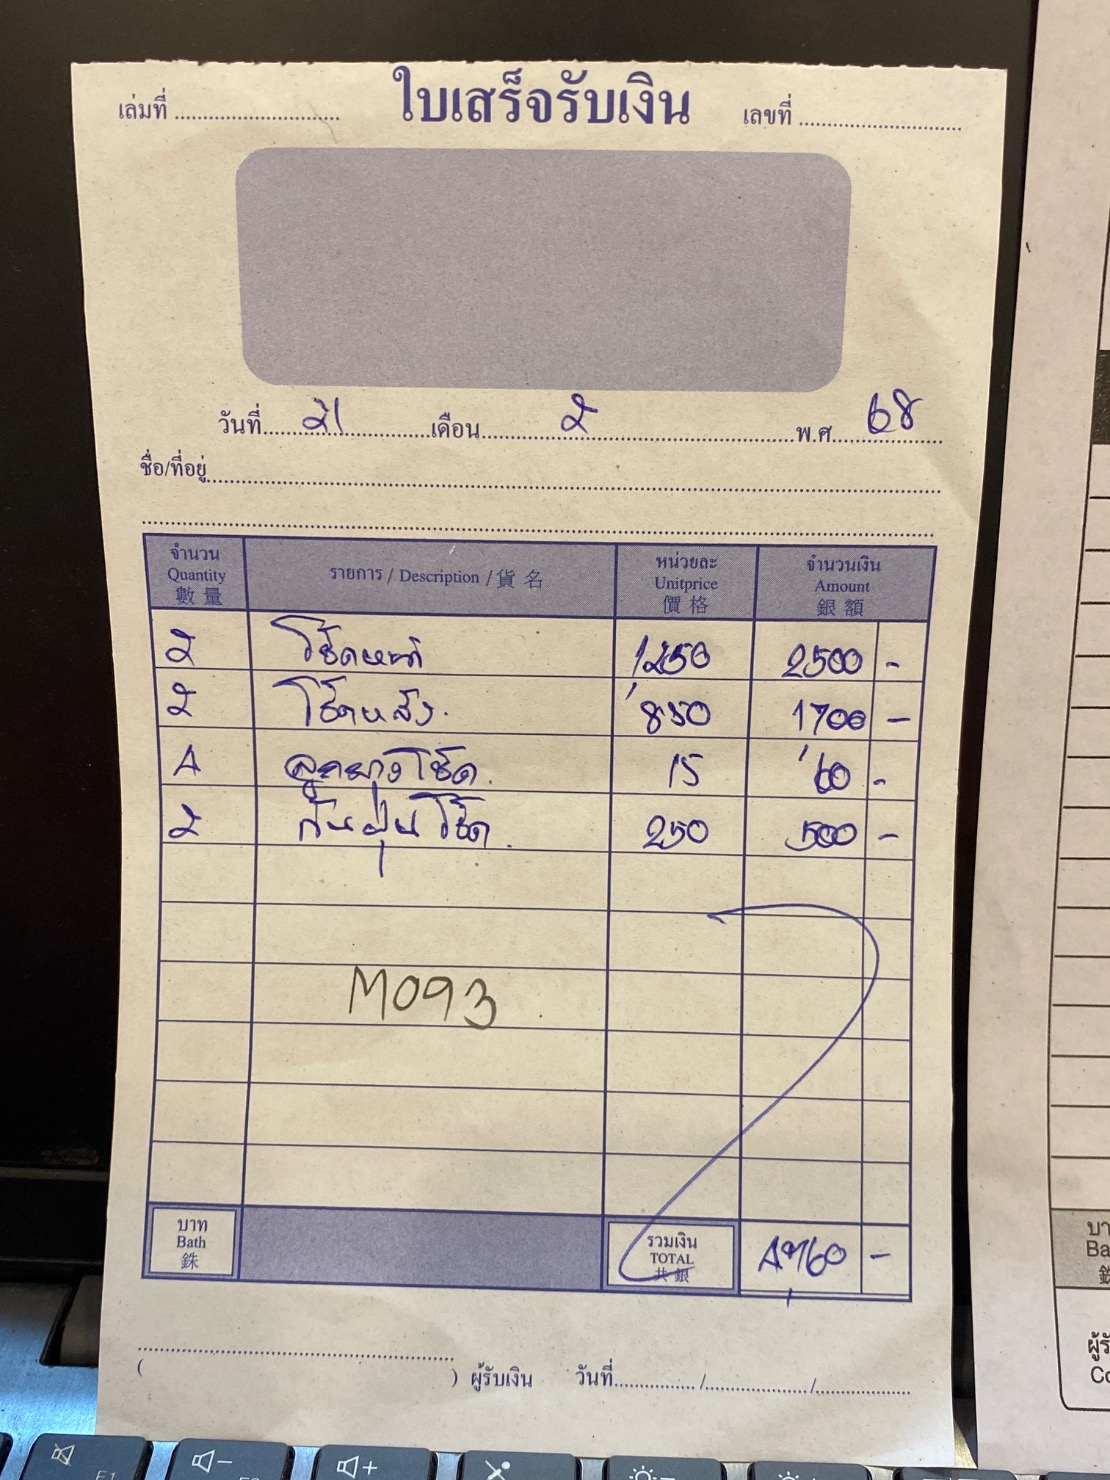 ใบเสร็จรับเงิน
เล่มที่ เลขที่
วันที่ 21 เดือน 2 พ.ศ. 68
ชื่อ/ที่อยู่
จำนวน Quantity 數量 รายการ / Description / 貨名 หน่วยละ Unitprice 價格 จำนวนเงิน Amount 銀額
2 โช๊คหน้า 1,250 2500 -
2 โช๊คหลัง. 850 1,700 -
4 ลูกยางโช๊ค. 15 60 -
2 กันฝุ่นโช๊ค. 250 500 -
M093
บาท Bath 銖 รวมเงิน TOTAL 共銀 4,760 -
( ) ผู้รับเงิน วันที่ / /
F1